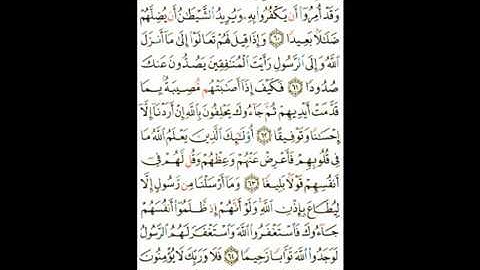 وَقَدْ أُمِرُوٓا۟ أَن يَكْفُرُوا۟ بِهِۦ وَيُرِيدُ ٱلشَّيْطَٰنُ أَن يُضِلَّهُمْ
ضَلَٰلًۢا بَعِيدًا ٦٠ وَإِذَا قِيلَ لَهُمْ تَعَالَوْا۟ إِلَىٰ مَآ أَنزَلَ
ٱللَّهُ وَإِلَى ٱلرَّسُولِ رَأَيْتَ ٱلْمُنَٰفِقِينَ يَصُدُّونَ عَنكَ
صُدُودًا ٦١ فَكَيْفَ إِذَآ أَصَٰبَتْهُم مُّصِيبَةٌۢ بِمَا
قَدَّمَتْ أَيْدِيهِمْ ثُمَّ جَآءُوكَ يَحْلِفُونَ بِٱللَّهِ إِنْ أَرَدْنَآ إِلَّآ
إِحْسَٰنًا وَتَوْفِيقًا ٦٢ أُو۟لَٰٓئِكَ ٱلَّذِينَ يَعْلَمُ ٱللَّهُ مَا
فِى قُلُوبِهِمْ فَأَعْرِضْ عَنْهُمْ وَعِظْهُمْ وَقُل لَّهُمْ فِىٓ
أَنفُسِهِمْ قَوْلًۢا بَلِيغًا ٦٣ وَمَآ أَرْسَلْنَا مِن رَّسُولٍ إِلَّا
لِيُطَاعَ بِإِذْنِ ٱللَّهِ وَلَوْ أَنَّهُمْ إِذ ظَّلَمُوٓا۟ أَنفُسَهُمْ
جَآءُوكَ فَٱسْتَغْفَرُوا۟ ٱللَّهَ وَٱسْتَغْفَرَ لَهُمُ ٱلرَّسُولُ
لَوَجَدُوا۟ ٱللَّهَ تَوَّابًا رَّحِيمًا ٦٤ فَلَا وَرَبِّكَ لَا يُؤْمِنُونَ